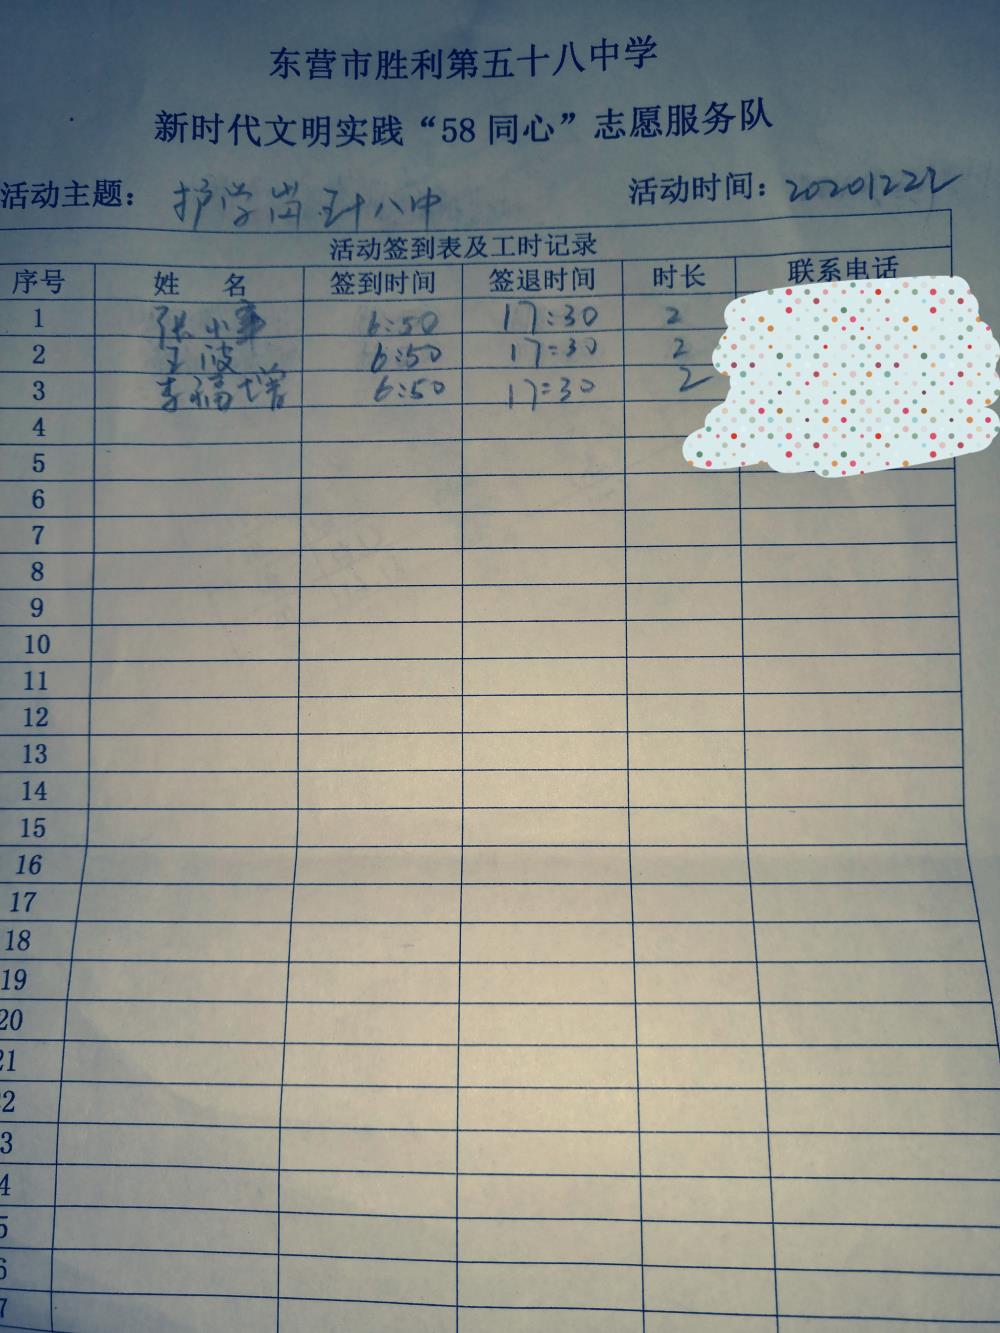 东营市胜利第五十八中学
新时代文明实践“58同心”志愿服务队
活动主题: 护学岗 五十八中 活动时间: 20201222
活动签到表及工时记录
序号 姓 名 签到时间 签退时间 时长 联系电话
1 张小军 6:50 17:30 2
2 王波 6:50 17:30 2
3 李福增 6:50 17:30 2
4
5
6
7
8
9
10
11
12
13
14
15
16
17
18
19
20
21
2
3
4
5
6
7